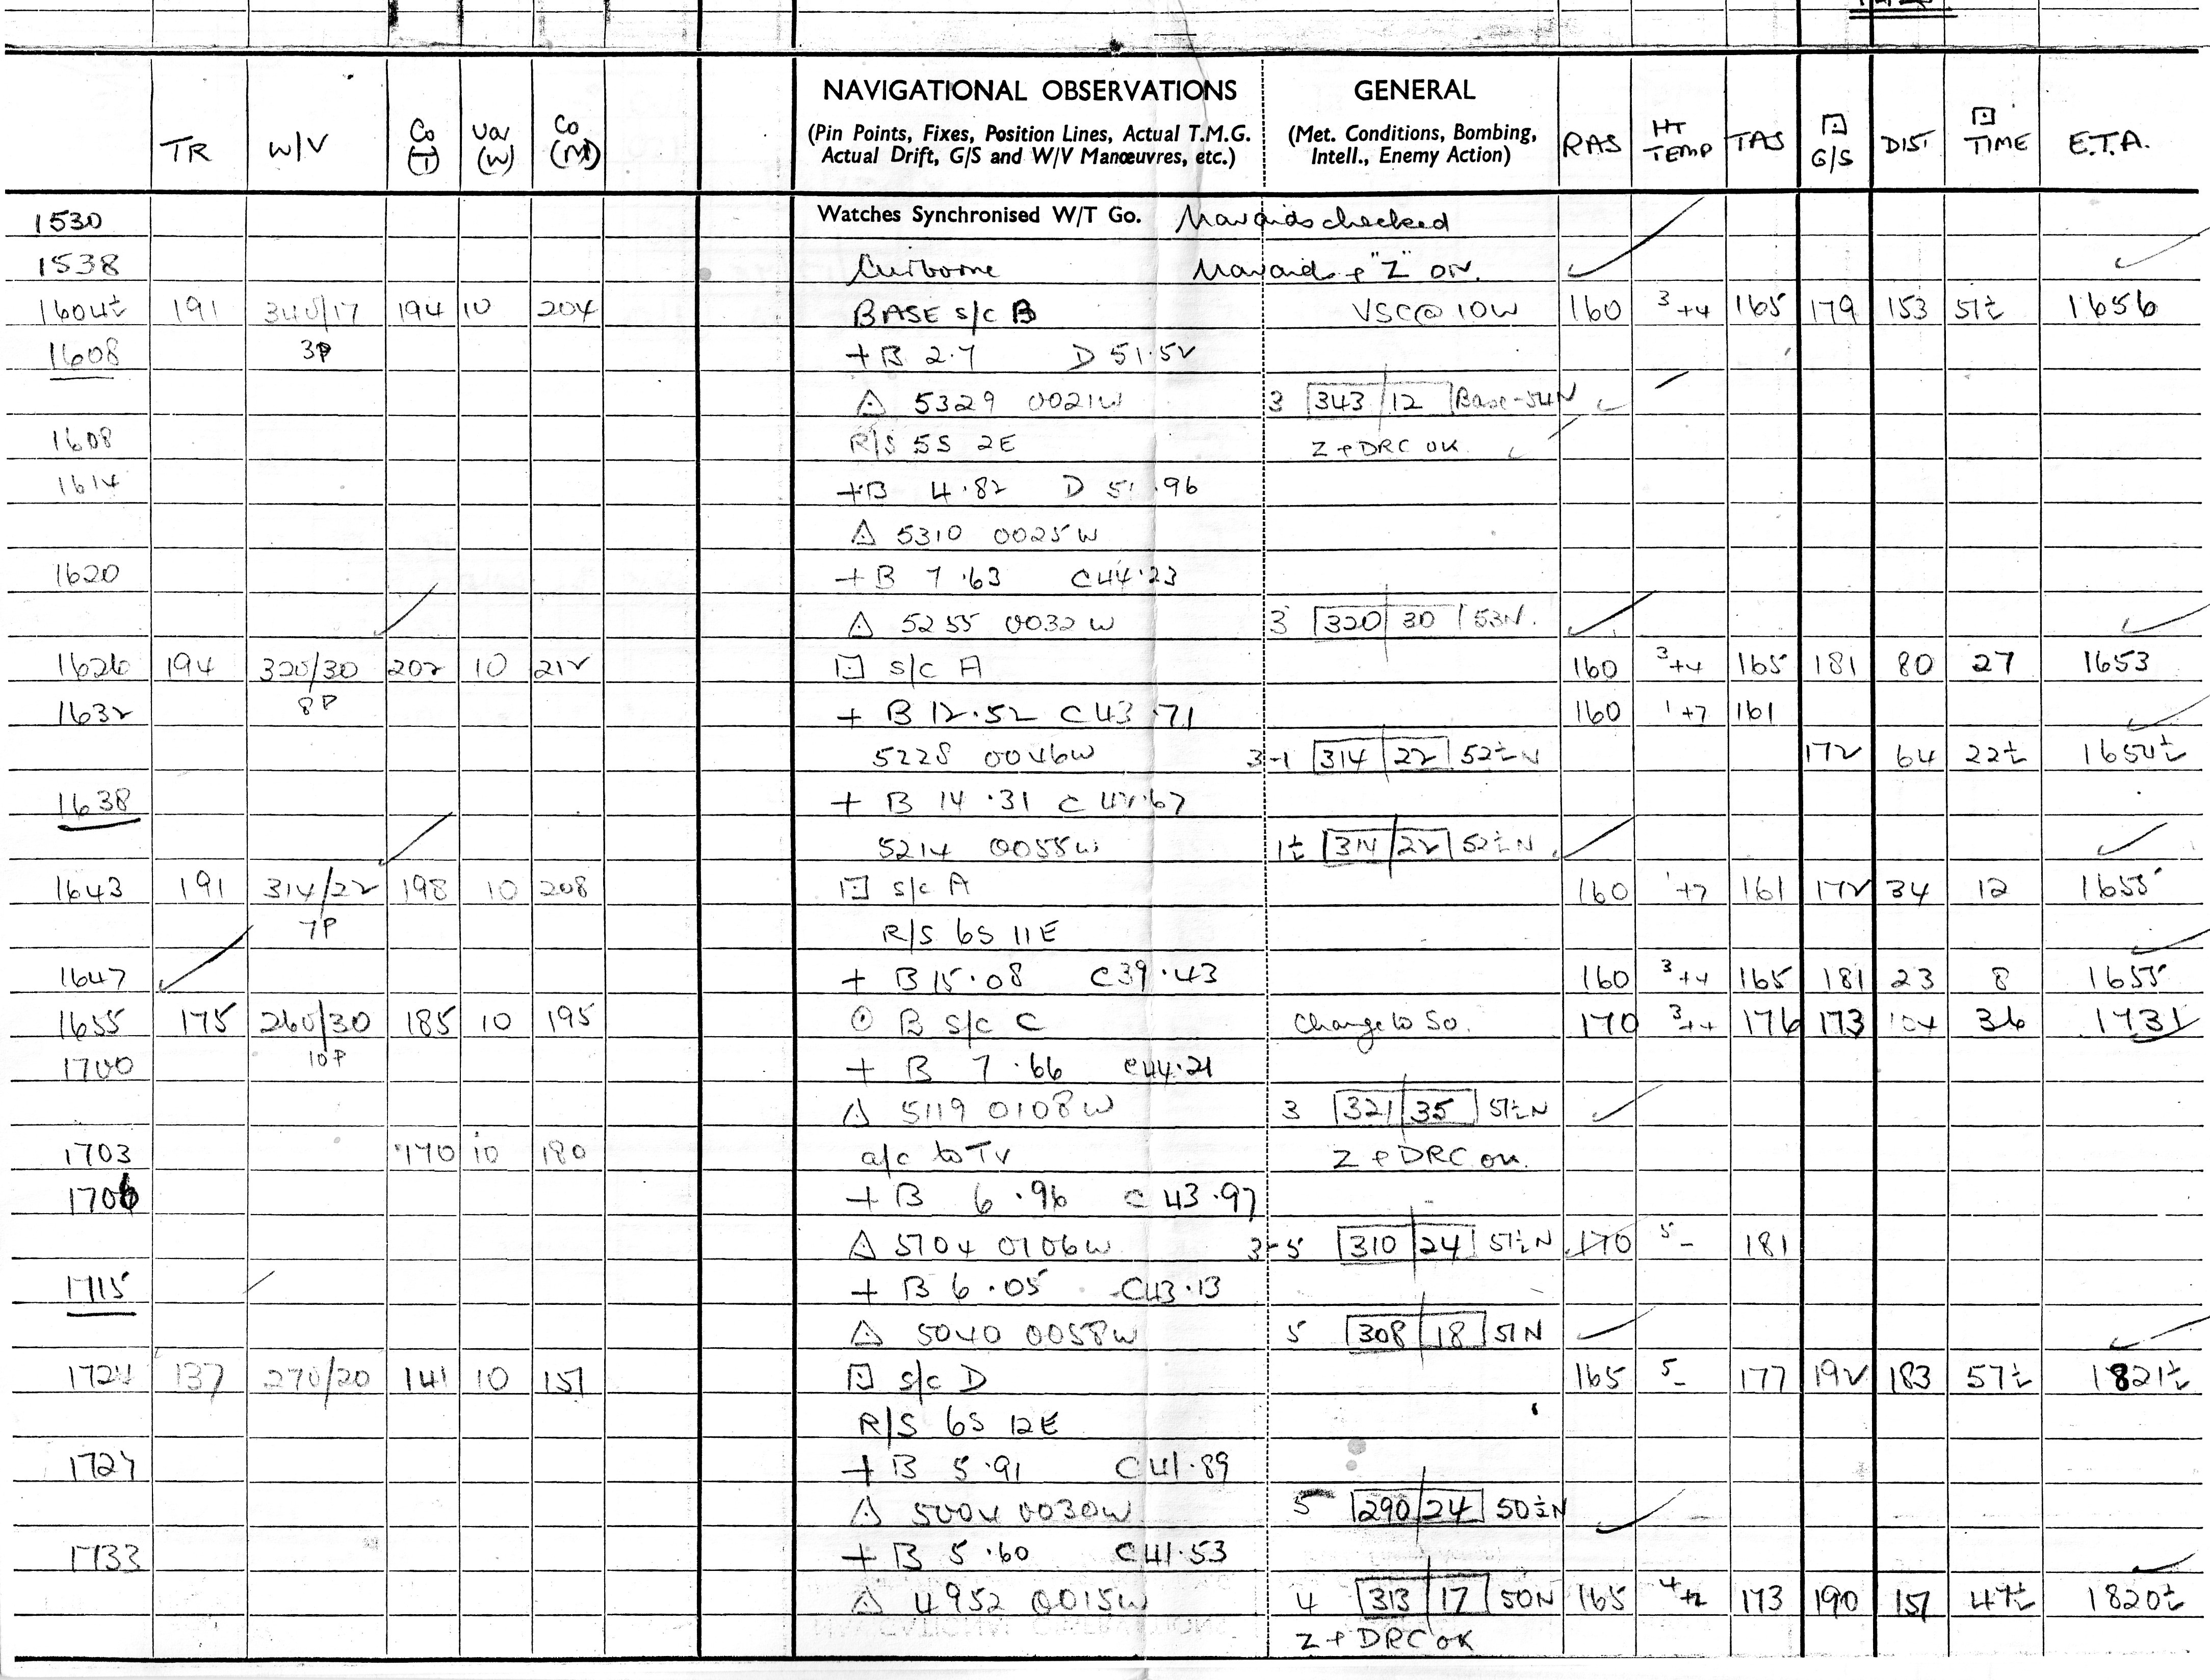 NAVIGATIONAL OBSERVATIONS GENERAL
(Pin Points, Fixes, Position Lines, Actual T.M.G. (Met. Conditions, Bombing,
Actual Drift, G/S and W/V Manœuvres, etc.) Intell., Enemy Action)
TR W/V Co (T) Var (W) Co (M) RAS HT TEMP TAS G/S DIST TIME E.T.A.
1530 Watches Synchronised W/T Go. Navaids checked
1538 Airborne Navaids + "Z" ON.
1604½ 191 340/17 194 10 204 BASE S/C B VSC@10W 160 3 +4 165 179 153 51½ 1656
1608 3P + B 2.7 D 51.52
△ 5329 0021W 3 343/12 Base-54N
1608 R/S 5S 2E Z + DRC OK
1614 + B 4.82 D 51.96
△ 5310 0025W
1620 + B 7.63 C44.23
△ 5255 0032W 3 320/30 53N.
1626 194 320/30 202 10 212 S/C A 160 3 +4 165 181 80 27 1653
1632 8P + B 12.52 C43.71 160 1 +7 161
5228 0046W 3-1 314/22 52½N 172 64 22½ 1654½
1638 + B 14.31 C 42.67
5214 0055W 1½ 314/22 52½N
1643 191 314/22 198 10 208 S/C A 160 1 +7 161 172 34 12 1655
7P R/S 6S 11E
1647 + B 15.08 C39.43 160 3 +4 165 181 23 8 1655
1655 175 260/30 185 10 195 ⊙ B S/C C Change to So. 170 3 +4 176 173 104 36 1731
1700 10P + B 7.66 C44.21
△ 5119 0108W 3 321/35 51½N
1703 170 10 180 a/c to TV Z + DRC OK.
1706 + B 6.96 C 43.97
△ 5104 0106W 3-5 310/24 51½N 170 5 - 181
1715 + B 6.05 C43.13
△ 5040 0058W 5 308/18 51N
1724 137 270/20 141 10 151 S/C D 165 5 - 177 192 183 57½ 1821½
R/S 6S 12E
1727 + B 5.91 C41.89
△ 5004 0030W 5 290/24 50½N
1733 + B 5.60 C41.53
△ 4952 0015W 4 313/17 50N 165 4 +2 173 190 151 47½ 1820½
Z + DRC OK